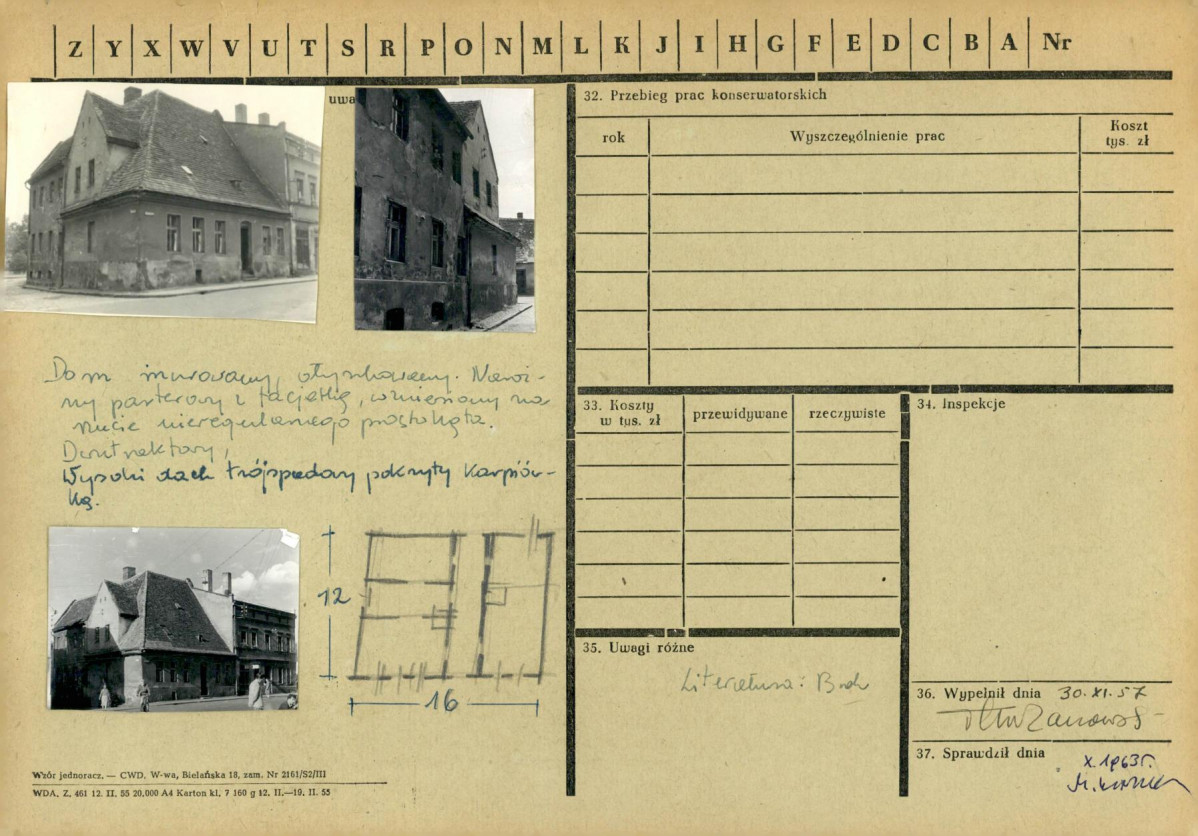 Z Y X W V U T S R P O N M L K J I H G F E D C B A Nr
uwa
Dom murowany, otynkowany. Naroż-
ny parterowy z facjatką, wzniesiony na
rzucie nieregularnego prostokąta.
Dwutraktowy,
Wysoki dach trójspadowy pokryty karpiów-
ką.
12
16
Wzór jednoracz. — CWD. W-wa, Bielańska 18, zam. Nr 2161/S2/III
WDA. Z. 461 12. II. 55 20.000 A4 Karton kl. 7 160 g 12. II.—19. II. 55
32. Przebieg prac konserwatorskich
rok Wyszczególnienie prac Koszt
tys. zł
33. Koszty
w tys. zł
przewidywane rzeczywiste
34. Inspekcje
35. Uwagi różne
Literatura:
36. Wypełnił dnia 30.XI.57
37. Sprawdził dnia
X.1963r.